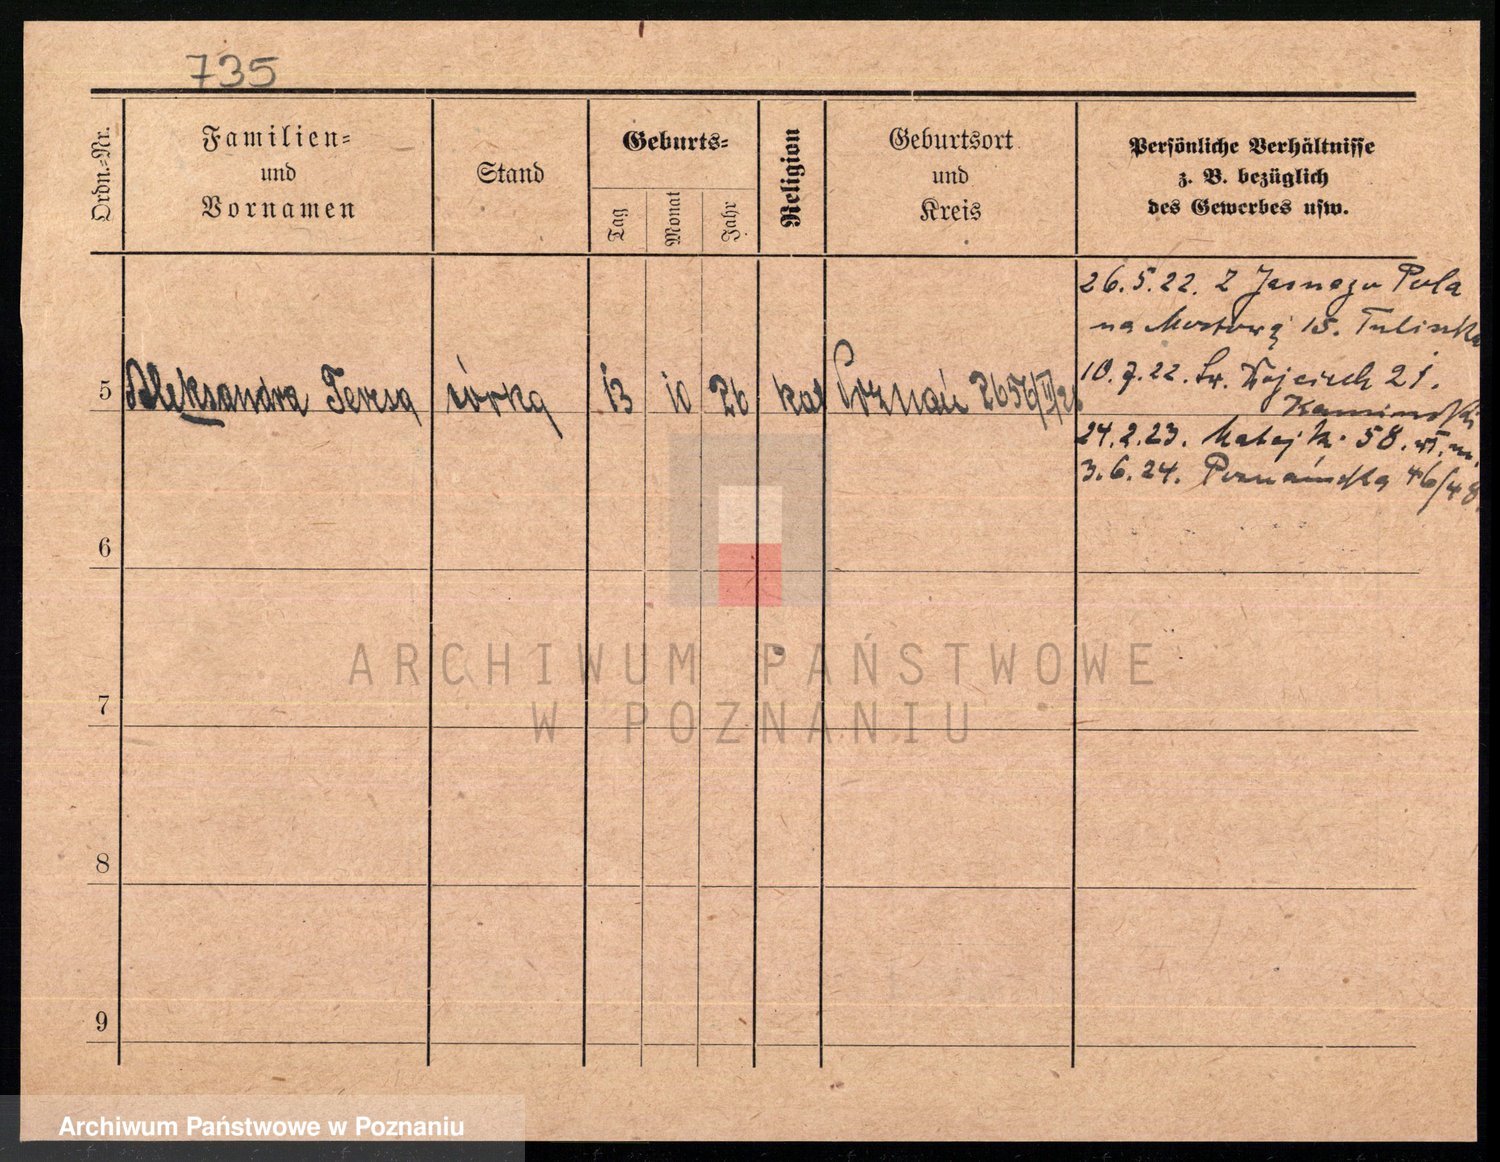 735
Ordn.=Nr.
Familien=
und
Vornamen
Stand
Geburts=
Tag
Monat
Jahr
Religion
Geburtsort
und
Kreis
Persönliche Verhältnisse
z. B. bezüglich
des Gewerbes usw.
26.5.22. Z Jasnego Pola
na Mostową 15. Tuliszka
10.7.22. Św. Wojciech 21.
Kamiński
5 Aleksandra Teresa córka 13 10 26 kat Poznań 2656/III/26
24.2.23. Matejki 58. m.
3.6.24. Poznańska 46/48.
6
7
8
9
ARCHIWUM PAŃSTWOWE
W POZNANIU
Archiwum Państwowe w Poznaniu